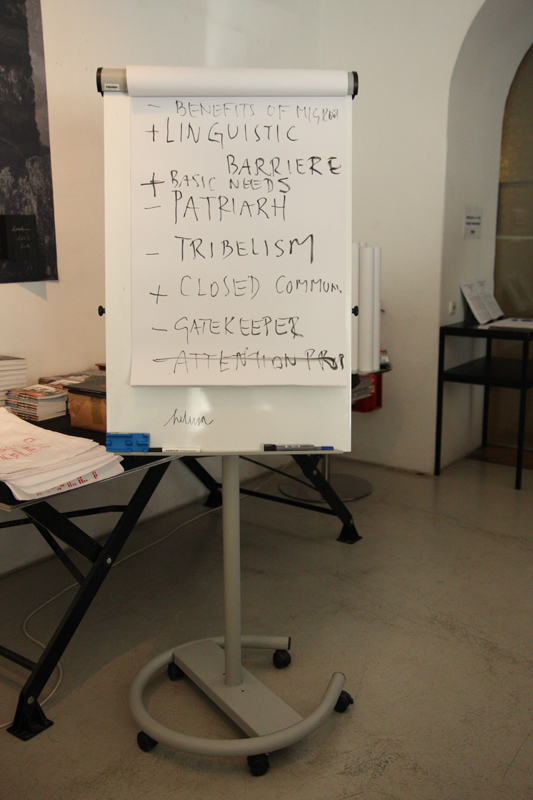 - BENEFITS OF
+ LINGUISTIC
BARRIERE
+ BASIC NEEDS
- PATRIARH
- TRIBELISM
+ CLOSED COMMUN.
- GATEKEEPER
- ATTENTION PROP